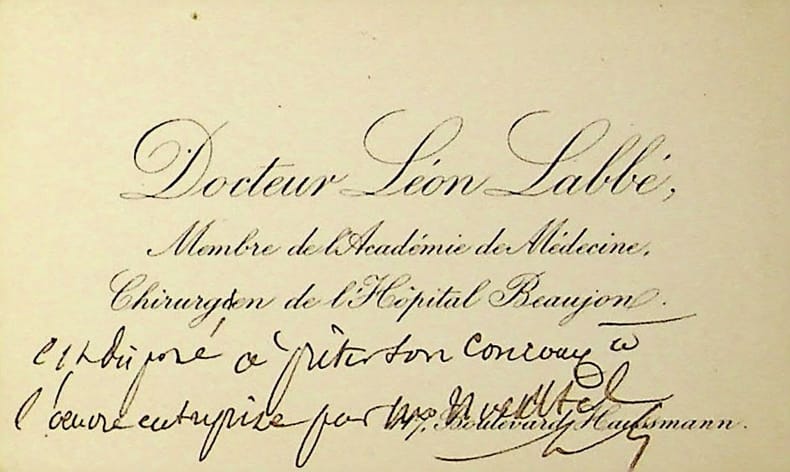 Docteur Léon Labbé,
Membre de l'Académie de Médecine.
Chirurgien de l'Hôpital Beaujon.
est disposé à prêter son concours à
l'œuvre entreprise par
Boulevard Haussmann.